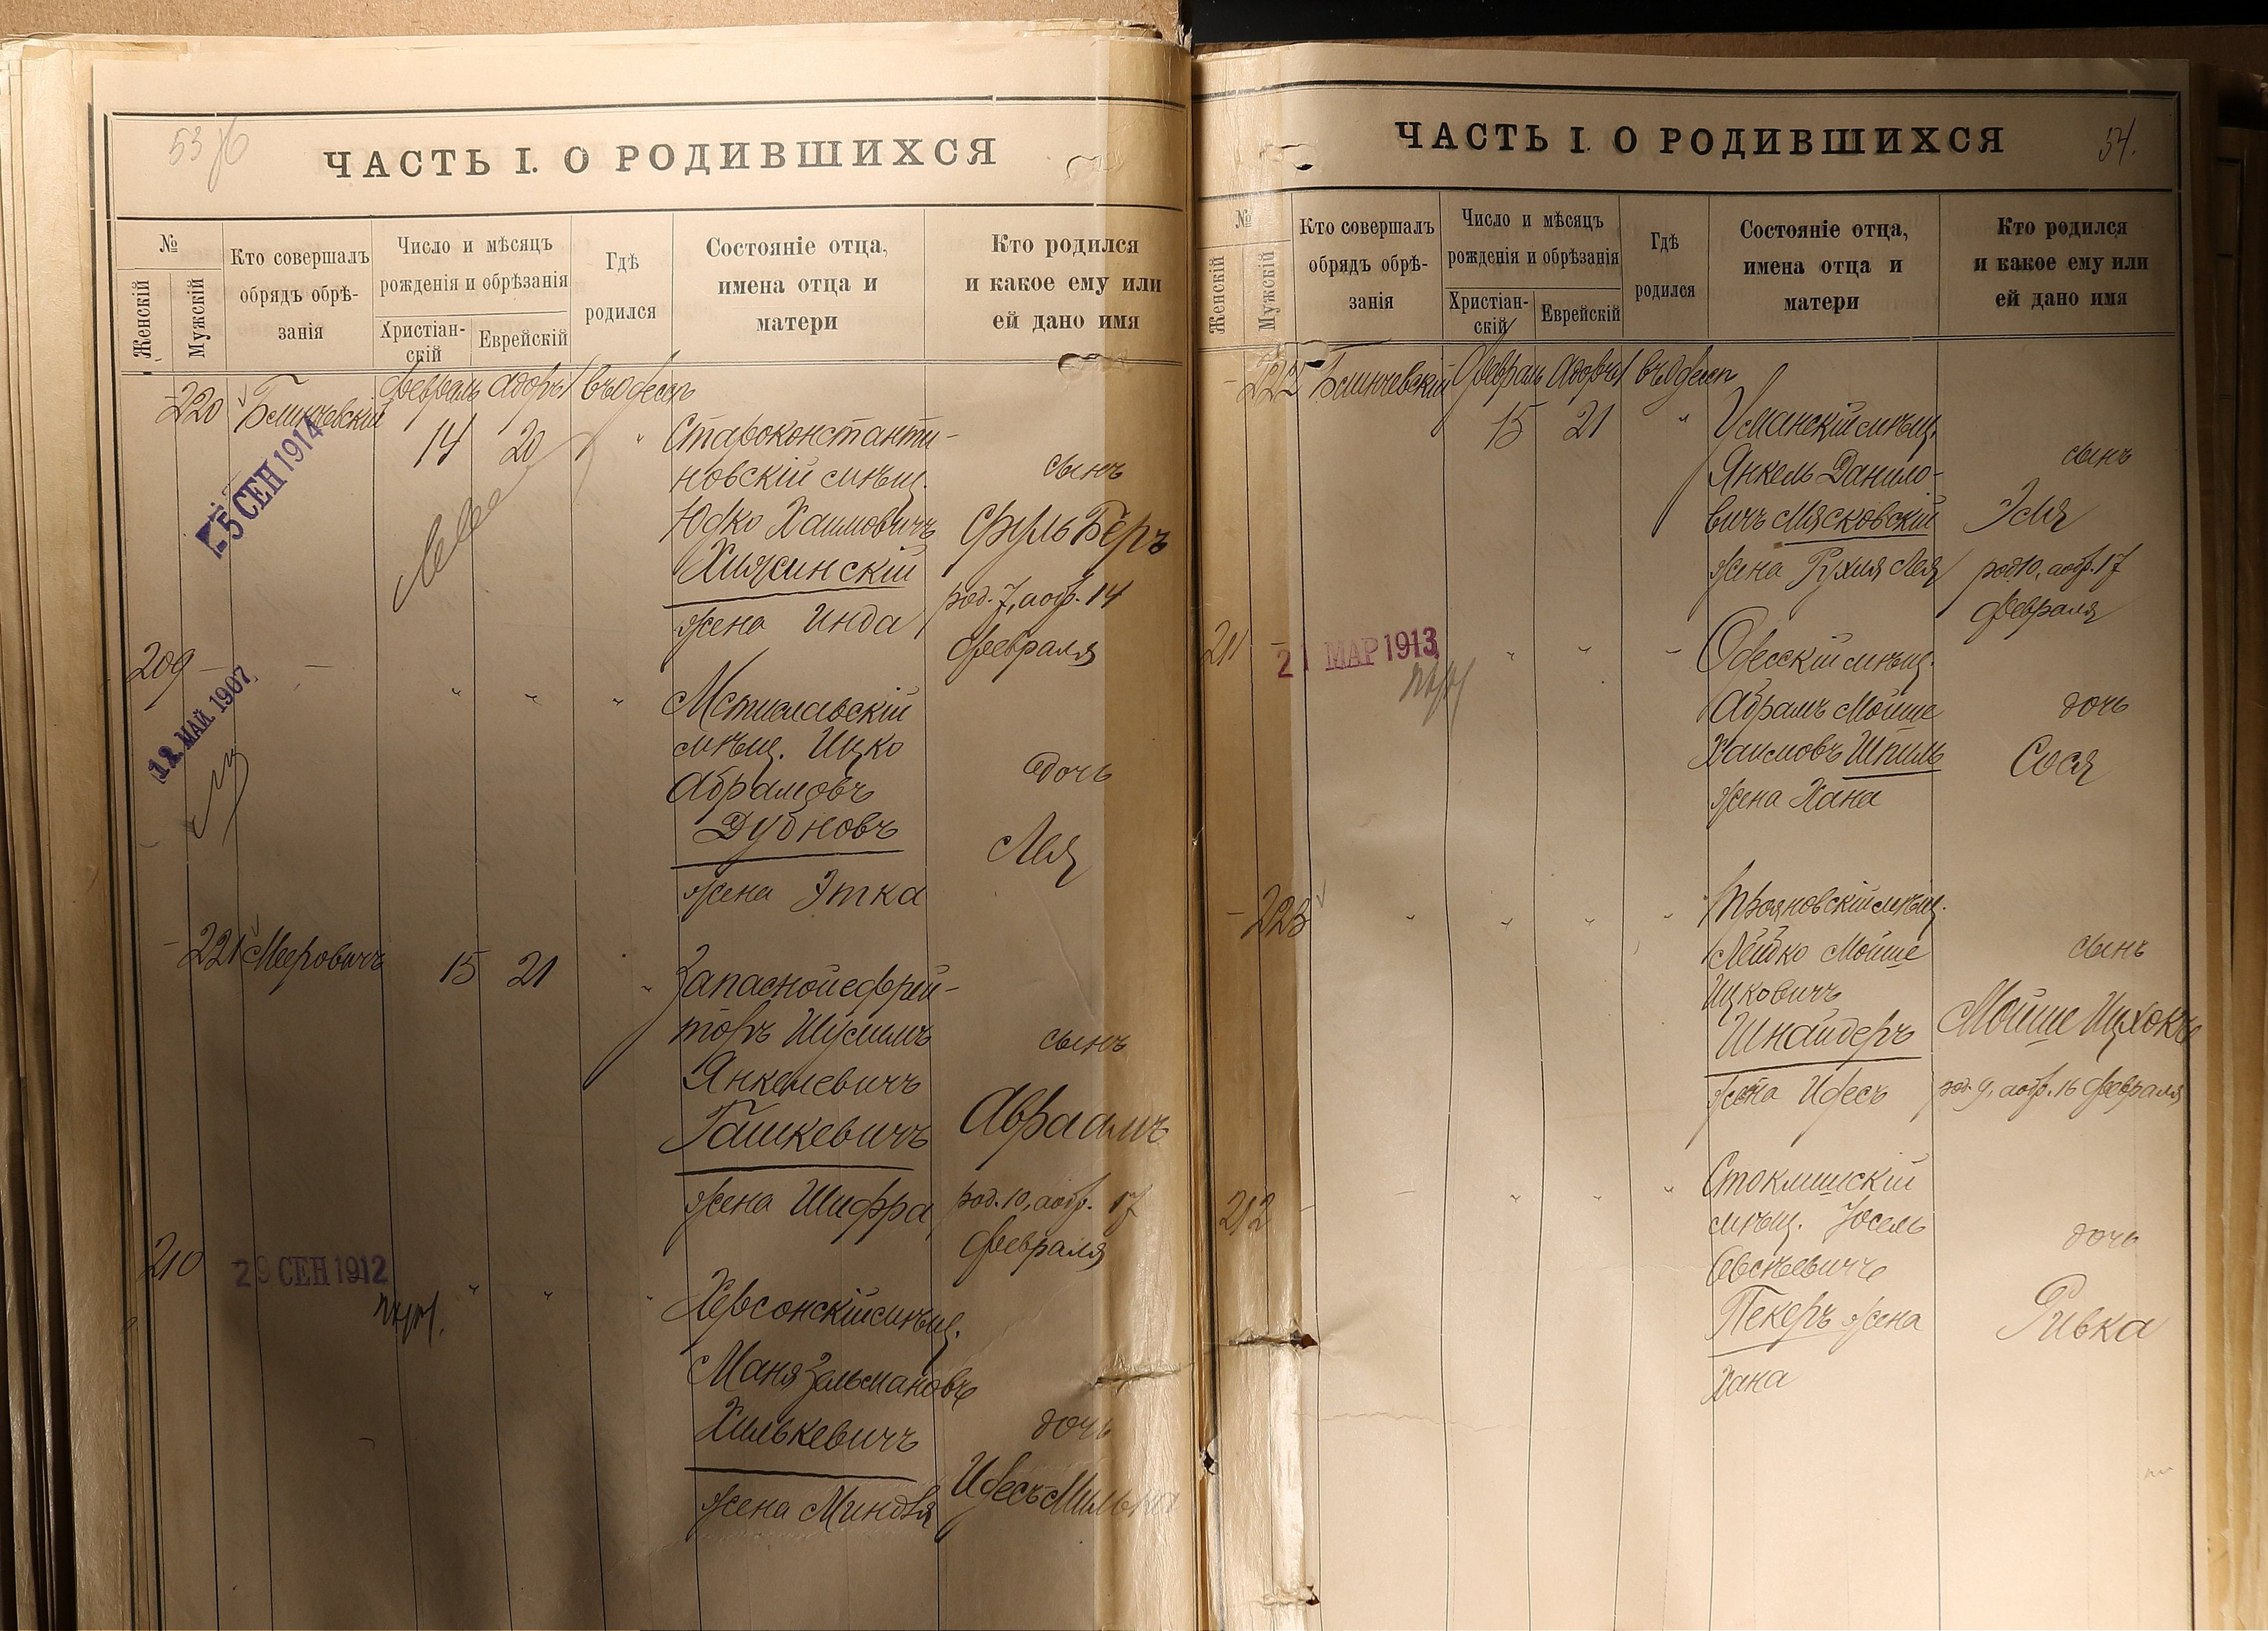 53
ЧАСТЬ I. О РОДИВШИХСЯ
№
Женскій
Мужскій
Кто совершалъ
обрядъ обрѣ-
занія
Число и мѣсяцъ
рожденія и обрѣзанія
Христіан-
скій
Еврейскій
Гдѣ
родился
Состояніе отца,
имена отца и
матери
Кто родился
и какое ему или
ей дано имя
220
Февраль Адаръ въ Одессѣ
14 20 "
5 СЕН 1914
Староконстанти-
новскій мѣщ.
Юдко Хаимовичъ
жена Инда
сынъ
Сруль Беръ
род. 7, а обр. 14
февраля
209 —
—
" " "
12 МАЙ 1907
Мстиславскій
мѣщ. Ицко
Абрамовъ
Дубновъ
жена Этка
дочь
Лея
221 Мееровичъ
15 21 "
Запасной ефрей-
торъ Шусимъ
Янкелевичъ
Гашкевичъ
жена Шифра
сынъ
Авраамъ
род. 10, а обр. 17
февраля
210
29 СЕН 1912
" " "
Херсонскій мѣщ.
Маня Зельмановъ
Хилькевичъ
жена Миндля
дочь
Идесъ Милька
54.
ЧАСТЬ I. О РОДИВШИХСЯ
№
Женскій
Мужскій
Кто совершалъ
обрядъ обрѣ-
занія
Число и мѣсяцъ
рожденія и обрѣзанія
Христіан-
скій
Еврейскій
Гдѣ
родился
Состояніе отца,
имена отца и
матери
Кто родился
и какое ему или
ей дано имя
222
Февраль Адаръ въ Одессѣ
15 21 "
Уманскій мѣщ.
Янкель Данило-
вичъ Мясковскій
жена Рухля Лея
сынъ
Эля
род. 10, а обр. 17
февраля
211 —
21 МАР 1913
" " "
Одесскій мѣщ.
Абрамъ Мойше
Хаимовъ Шпиль
жена Хана
дочь
Сося
223
" " " "
Трояновскій мѣщ.
Лейбко Мойше
Ицковичъ
Шнайдеръ
жена Идесъ
сынъ
Мойше Ицхокъ
род. 9, а обр. 16 февраля
212 —
—
" " "
Стоклишскій
мѣщ. Іосель
Овсѣевичъ
Пекеръ жена
Хана
дочь
Ривка